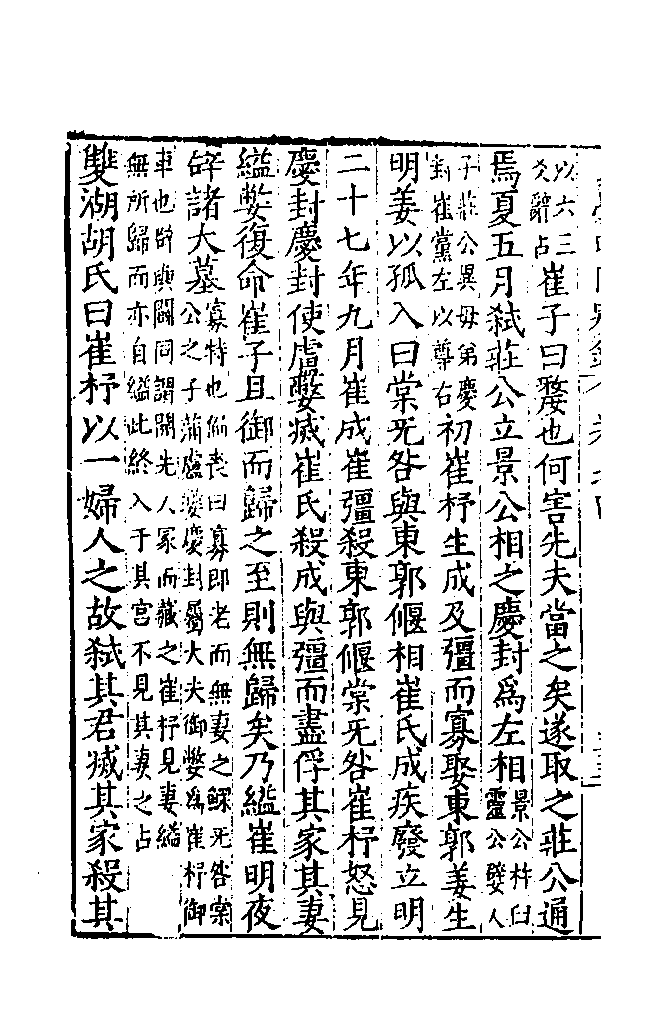 以六三
爻辭占
崔子曰嫠也何害先夫當之矣遂取之莊公通
焉夏五月弑莊公立景公相之慶封爲左相
景公杵臼
靈公嬖人
子莊公異母弟慶
封崔黨左以尊右
初崔杼生成及彊而寡娶東郭姜生
明姜以孤入曰棠旡咎與東郭偃相崔氏成疾廢立明
二十七年九月崔成崔彊殺東郭偃棠旡咎崔杼怒見
慶封慶封使盧蟞㓕崔氏殺成與彊而盡俘其家其妻
縊蟞復命崔子且御而歸之至則無歸矣乃縊崔明夜
辟諸大墓
寡特也喪曰寡即老而無妻之鰥旡咎棠
公之子蒲盧嫳慶封屬大夫御蟞爲崔杼御
車也辟與闢同謂開先人冢而藏之崔杼見妻縊
無所歸而亦自縊此終入于其宮不見其妻之占
雙湖胡氏曰崔杼以一婦人之故弑其君㓕其家殺其